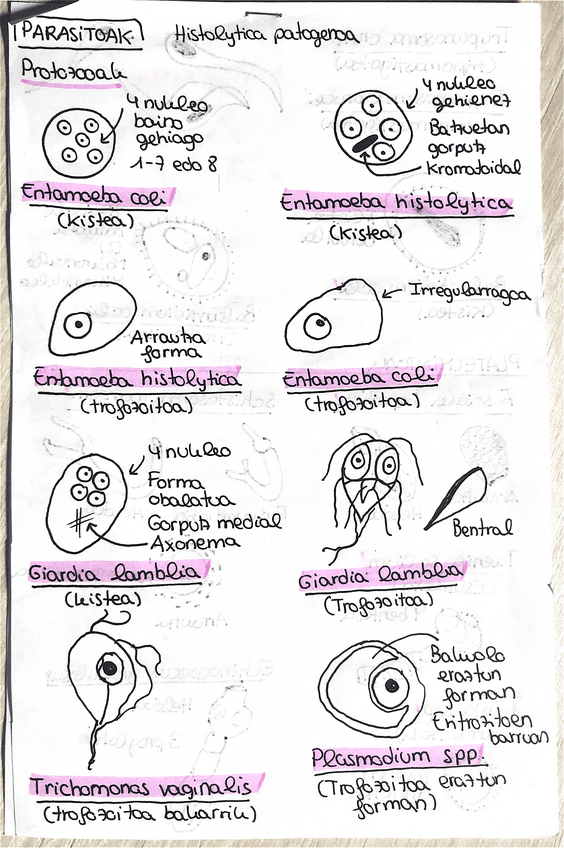 PARASITOAK.
Histolytica patogenoa
Protozoak
4 nukleo
baino
gehiago
1-7 edo 8
Entamoeba coli
(kistea)
4 nukleo
gehienez
Batzuetan
gorputz
kromatoidal
Entamoeba histolytica
(kistea)
Arrautza
forma
Entamoeba histolytica
(trofozoitoa)
Irregularragoa
Entamoeba coli
(trofozoitoa)
4 nukleo
Forma
obalatua
Gorputz medial
Axonema
Giardia lamblia
(kistea)
Bentral
Giardia lamblia
(Trofozoitoa)
Trichomonas vaginalis
(trofozoitoa bakarrik)
Bakuolo
eraztun
forman
Eritrozitoen
barruan
Plasmodium spp.
(Trofozoitoa eraztun
forman)